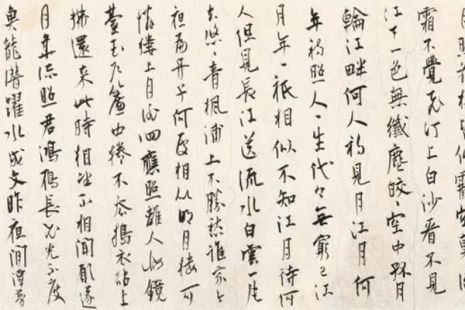 月照花林皆似霰空裏流
霜不覺飛汀上白沙看不見
江天一色無纖塵皎々空中孤月
輪江畔何人初見月江月何
年初照人々生代々無窮已江
月年々祇相似不知江月待何
人但見長江送流水白雲一片
去悠々青楓浦上不勝愁誰家今
夜扁舟子何處相思明月樓可
憐樓上月徘徊應照離人妝鏡
臺玉戶簾中捲不去搗衣砧上
拂還來此時相望不相聞願逐
月華流照君鴻雁長飛光不度
魚龍潛躍水成文昨夜閒潭夢